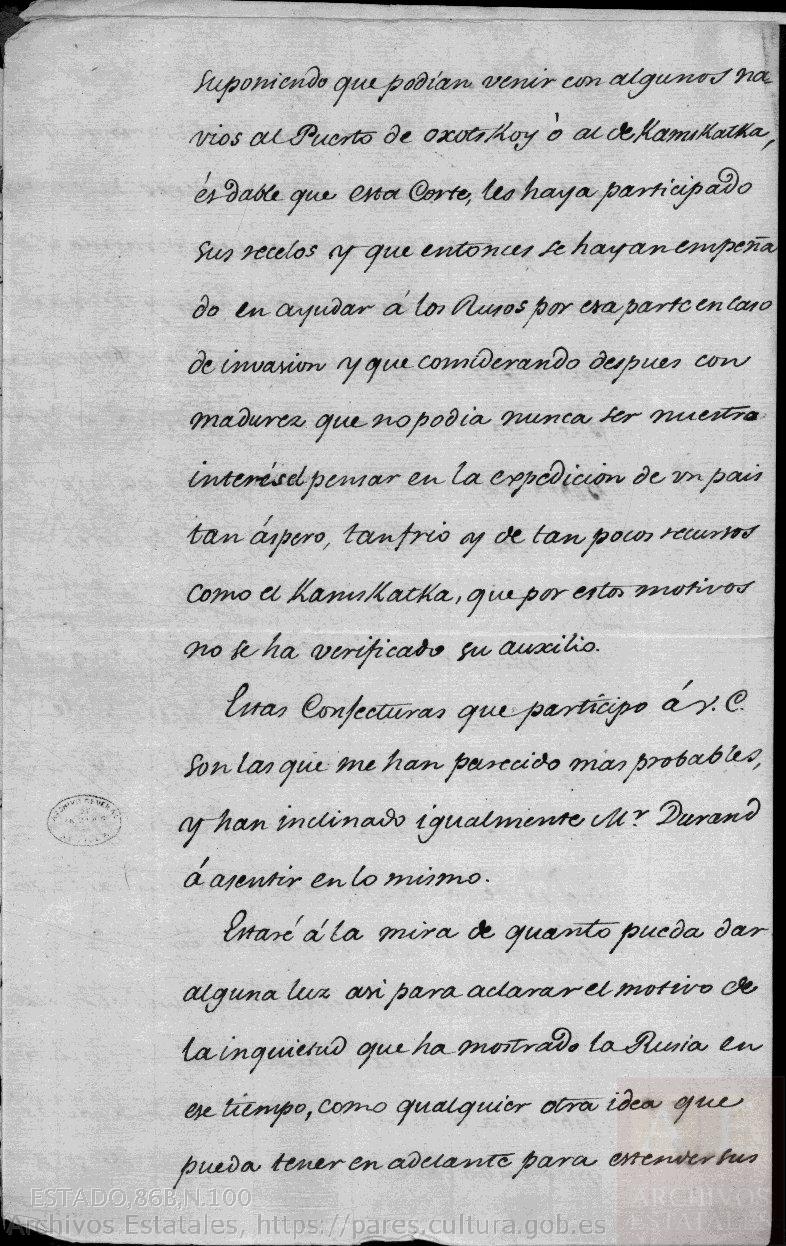 suponiendo que podían venir con algunos na-
vios al Puerto de oxotskoy ò al de Kamskatka,
és dable que esta Corte, les haya participado
sus recelos y que entonces se hayan empeña
do en ayudar á los Rusos por esa parte en caso
de invasion y que considerando despues con
madurez que no podia nunca ser nuestro
interés el pensar en la expedición de un pais
tan áspero, tan frio y de tan pocos recursos
como el Kamskatka, que por estos motivos
no se ha verificado su auxilio.
Estas Confecturas que participo á V. C.
son las que me han parecido mas probables,
y han inclinado igualmente Mr. Durand
á asentir en lo mismo.
Estaré á la mira de quanto pueda dar
alguna luz asi para aclarar el motivo de
la inquietud que ha mostrado la Rusia en
ese tiempo, como qualquier otra idea que
pueda tener en adelante para estender sus
ESTADO,86B,N.100
Archivos Estatales, https://pares.cultura.gob.es
ARCHIVOS
ESTATALES